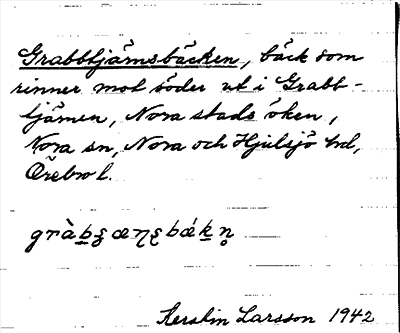 Grabbtjärnsbäcken, bäck som
rinner mot söder ut i Grabb-
tjärnen, Nora stads öken,
Nora sn, Nora och Hjulsjö bd,
Örebro l.
Kerstin Larsson 1942